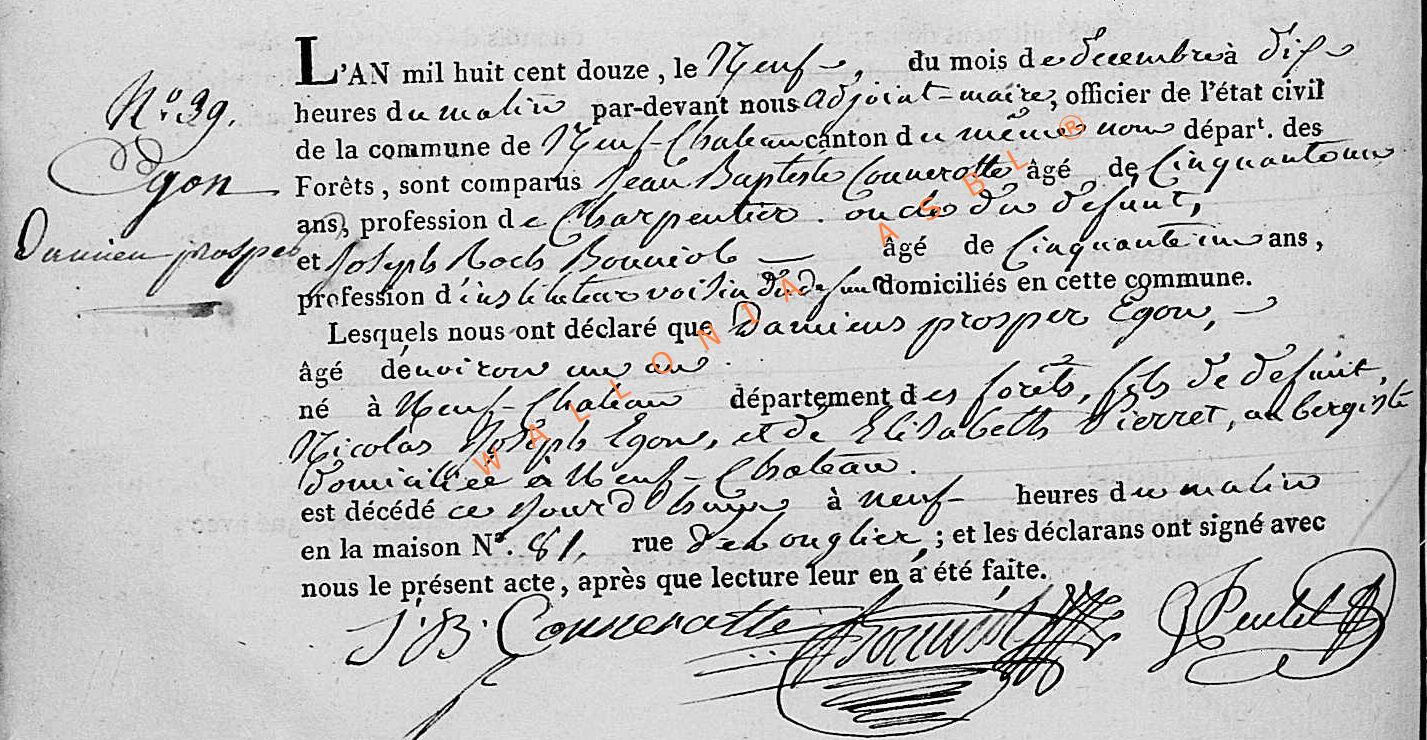 N.o 39.
Egon
Damien prosper
L'AN mil huit cent douze, le Neuf, du mois de decembre à dix
heures du matin par-devant nous adjoint-maire, officier de l'état civil
de la commune de Neuf-Chateau canton du même nom départ. des
Forêts, sont comparus Jean Baptiste Connerotte âgé de Cinquante un
ans, profession de Charpentier. oncle du defunt,
et Joseph Roch Bonniol âgé de Cinquante un ans,
profession d'instituteur voisin du defunt domiciliés en cette commune.
Lesquels nous ont déclaré que Damiens prosper Egon,
âgé denviron un an.
né à Neuf-Chateau département des forêts, fils de defunt,
Nicolas Joseph Egon, et de Elisabeth Pierret, aubergiste
domiciliée à Neuf-Chateau.
est décédé ce jourd'huy à neuf heures du matin
en la maison No. 81, rue de Longlier,; et les déclarans ont signé avec
nous le présent acte, après que lecture leur en a été faite.
J. B. Connerotte Bonniol
WALLONIA ASBL ®